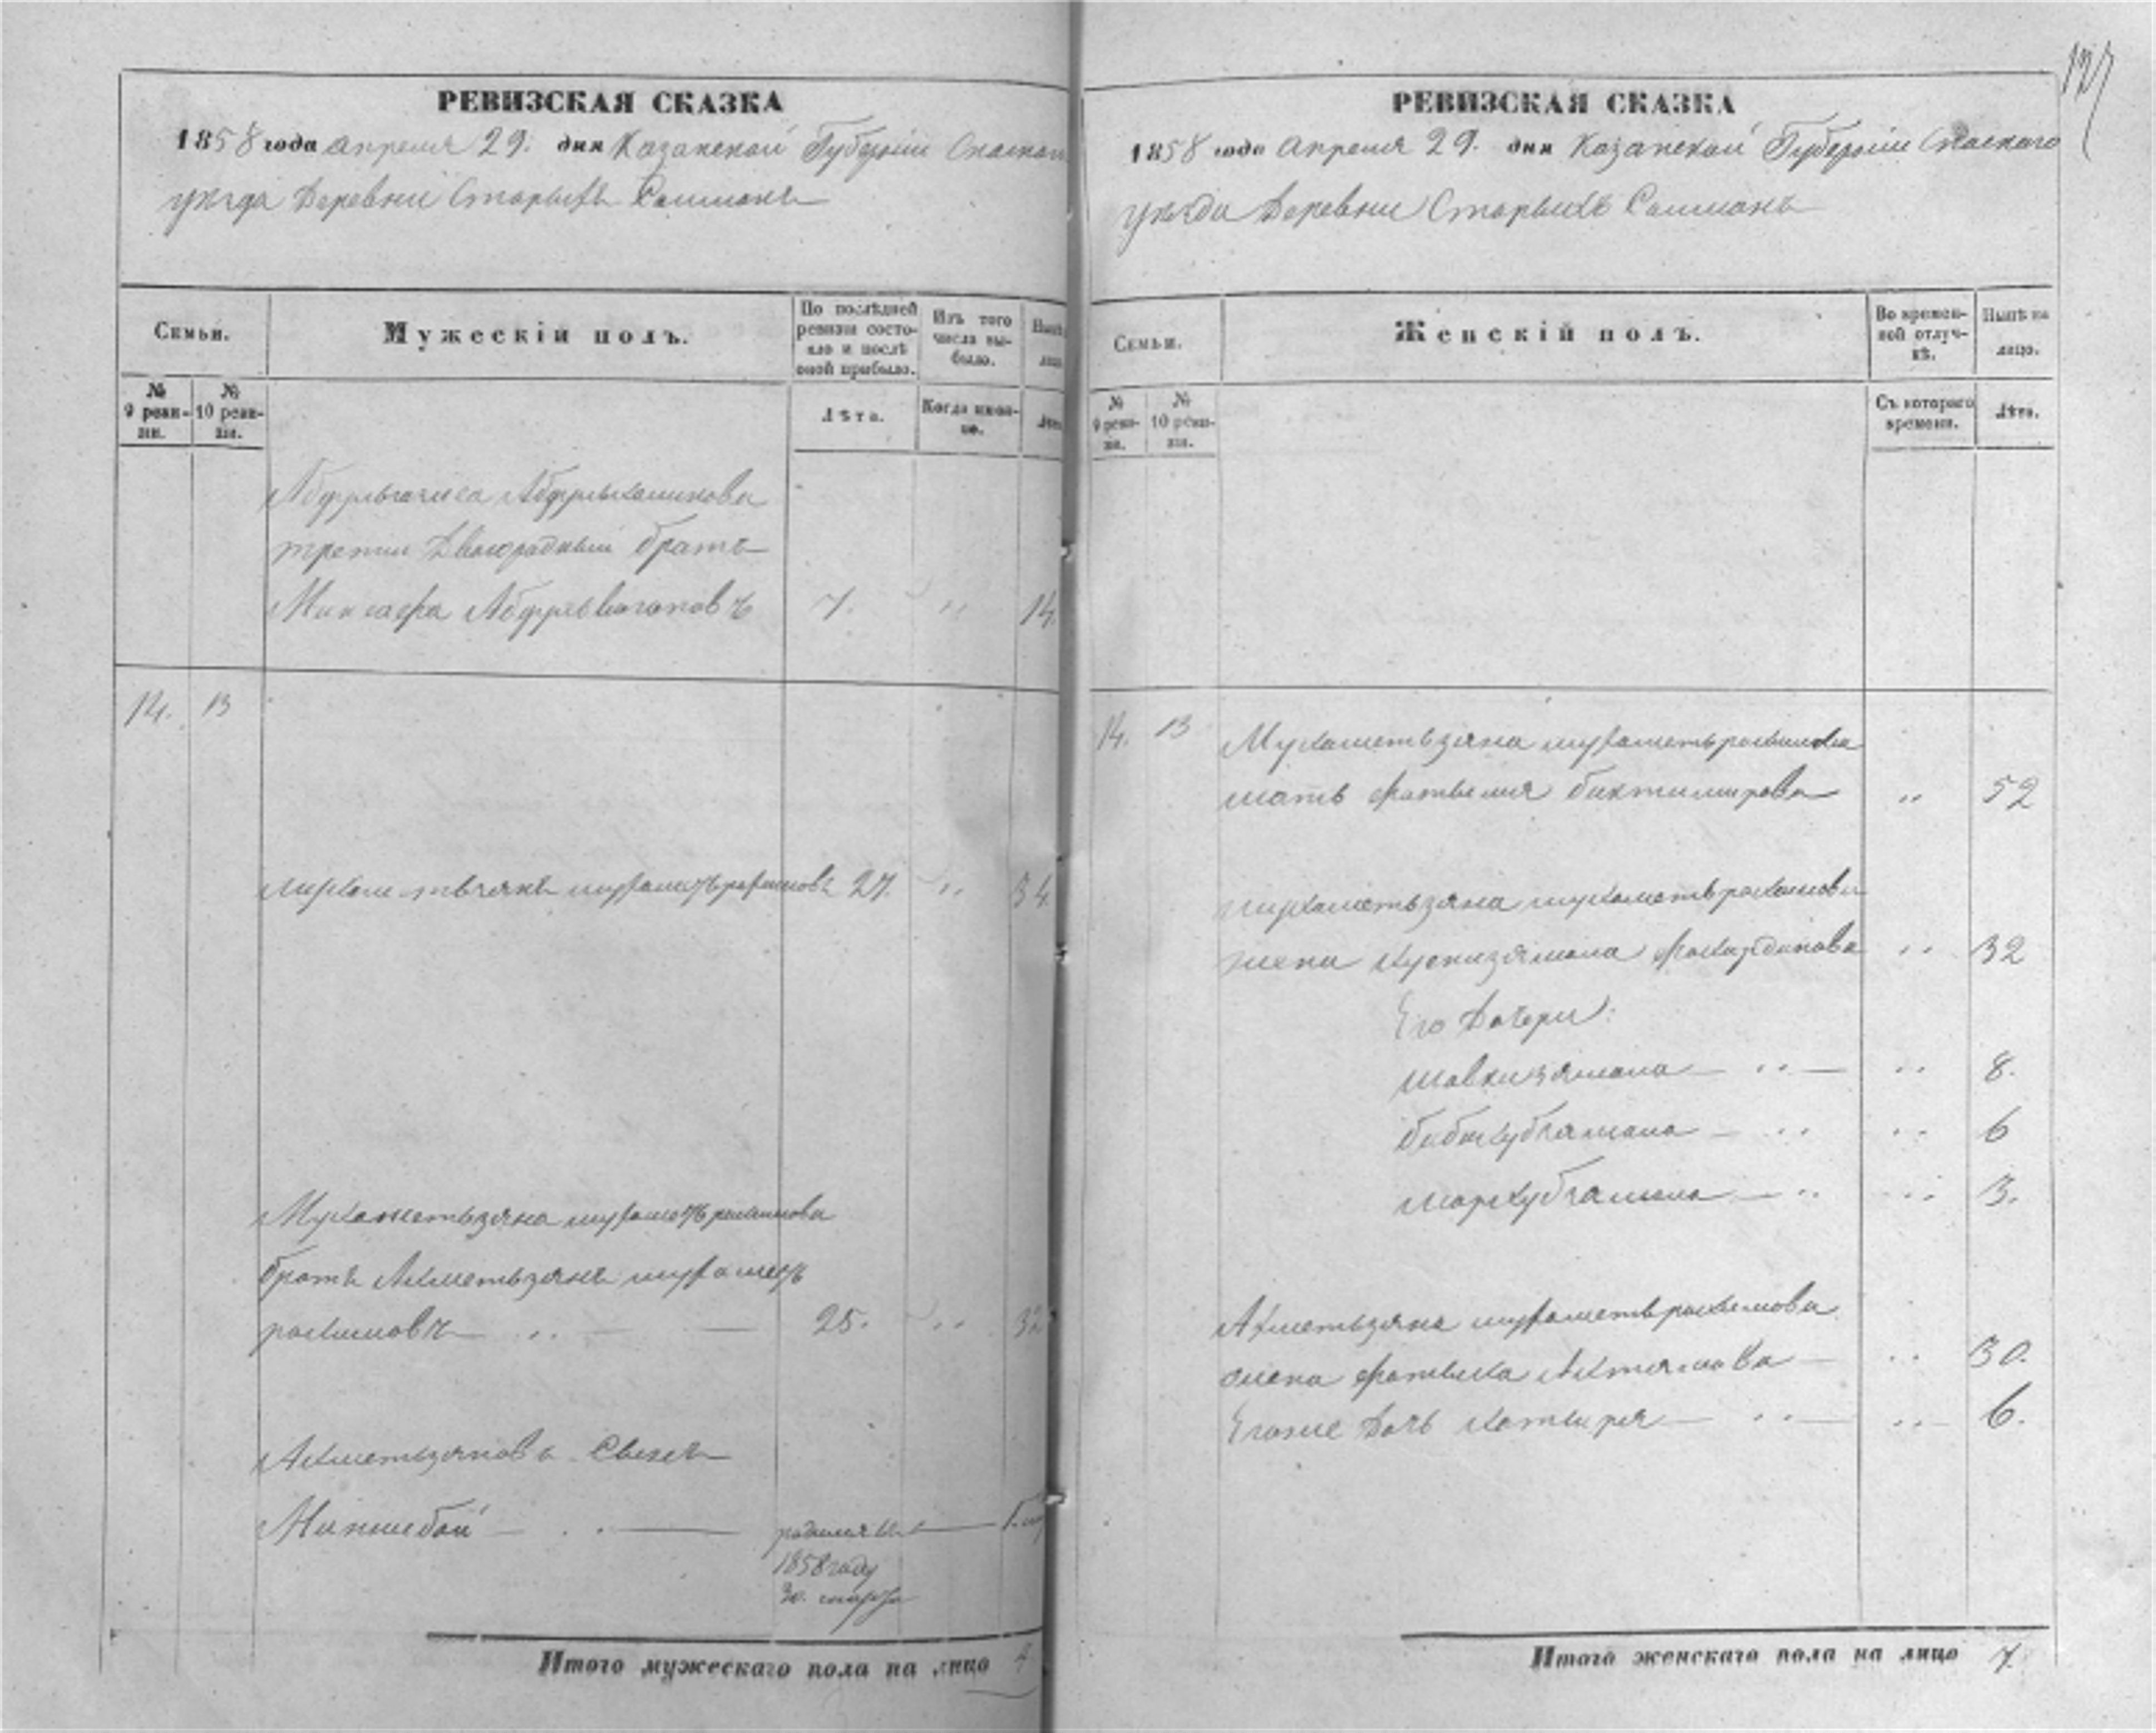 127
РЕВИЗСКАЯ СКАЗКА
1858 года апреля 29. дня Казанской Губернiи Спаскаго
уѣзда Деревни Старыхъ Салманъ
Семьи.
Мужескiй полъ.
По послѣдней ревизiи состояло и послѣ оной прибыло.
Изъ того числа выбыло.
Нынѣ
лицо
№ 9 ревизiи.
№ 10 ревизiи.
Лѣта.
Когда именно.
Лѣта
третiй Двоюродный братъ
7. " 14.
14. 13
Мухаметьзянъ мухаметьрахимовъ 27. " 34.
Мухаметьзяна мухаметьрахимова
братъ Ахметьзянъ мухаметь
рахимовъ — " — 25. " 32
Ахметьзяновъ Сынъ
Миншебай — " — родился въ
1858 году
30. марта
Итого мужескаго пола на лицо 4
РЕВИЗСКАЯ СКАЗКА
1858 года апреля 29. дня Казанской Губернiи Спаскаго
уѣзда Деревни Старыхъ Салманъ
Семьи.
Женскiй полъ.
Во временной отлучкѣ.
Нынѣ на лицо.
№ 9 ревизiи.
№ 10 ревизiи.
Съ котораго времени.
Лѣта.
14. 13 Мухаметьзяна мухаметьрахимова
мать Фатьима биктимирова " 52
мухаметьзяна мухаметьрахимова
жена Хуснизямала Фахирдинова " 32
Его Дочери:
шавкизямала — " — " 8.
бибихубзямала — " " 6
мархубзямала — " " 3.
Ахметьзяна мухаметьрахимова
жена Фатьиха Ахтямова — " 30.
Егоже Дочь — " — " 6.
Итого женскаго пола на лицо 7.